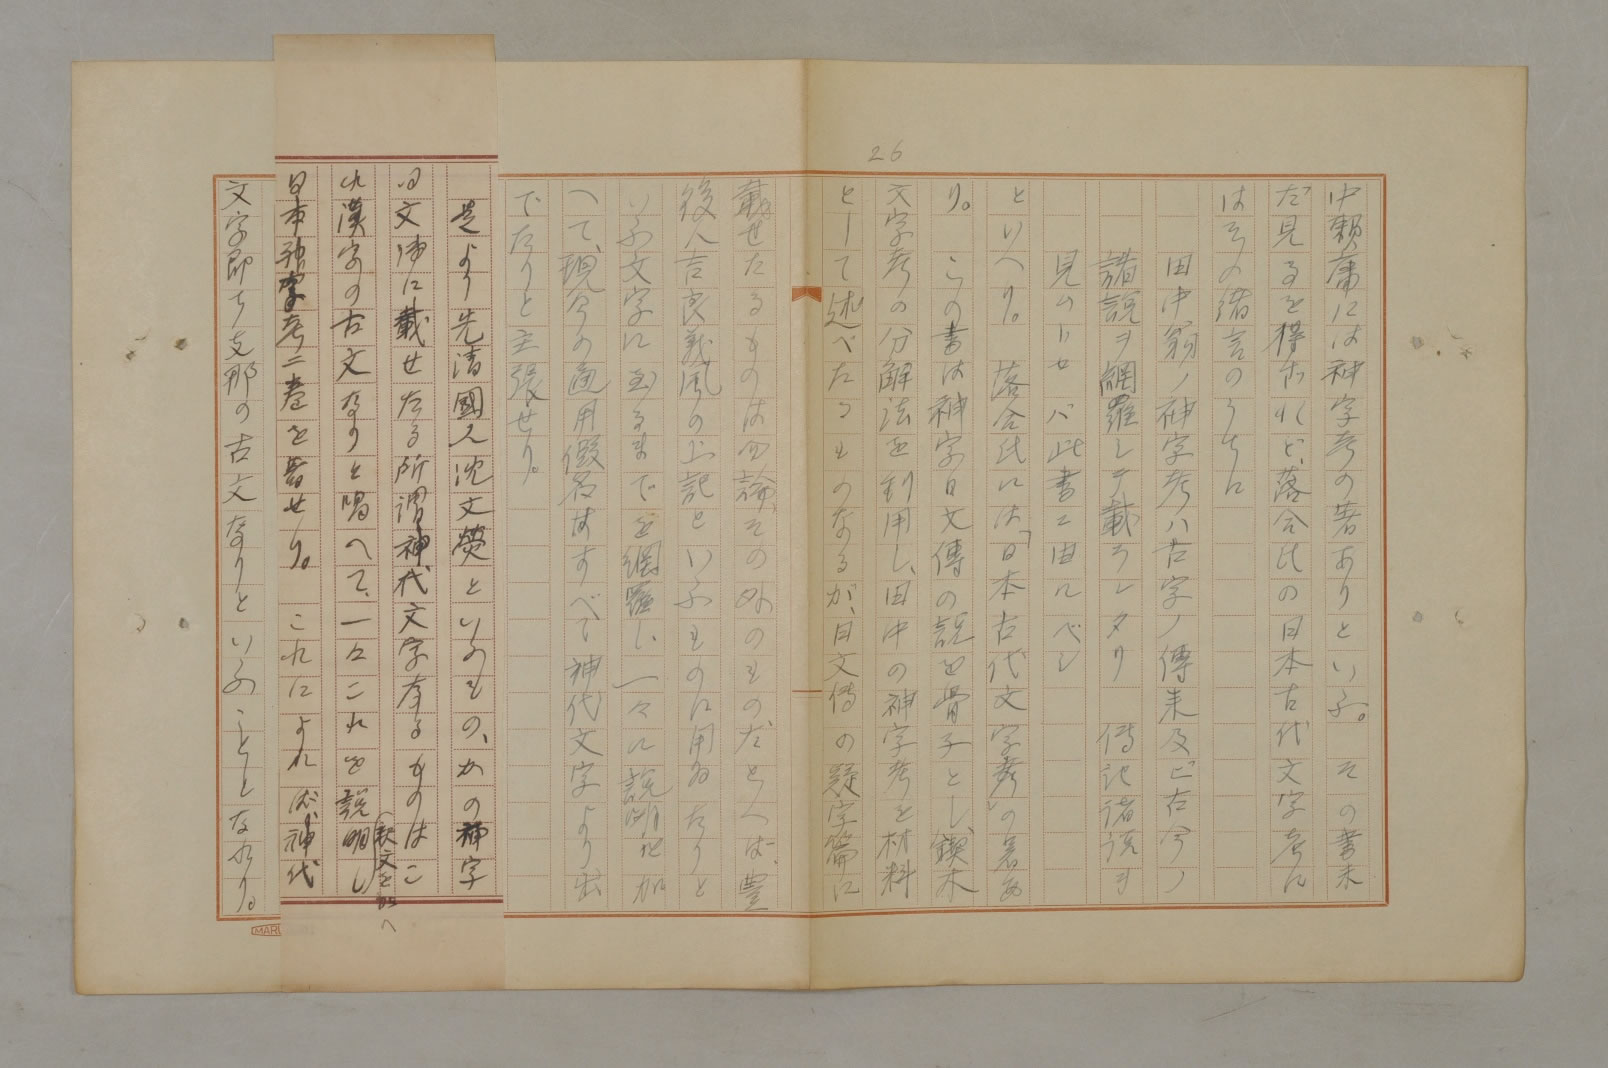 26
中頼庸には神字考の著ありといふ。その書未
だ見るを得ざれど、落合氏の日本古代文字考に
はその緒言のうちに
田中翁ノ神字考ハ古字ノ傳来及ビ古今ノ
諸説ヲ網羅シテ載ラレタリ 傳記諸説ヲ
見ムトセバ此書ニ由ルベシ
といへり。 落合氏には「日本古代文字考」の著あ
り。 この書は神字日文傳の説を骨子とし、鍥木
文字考の分解法を利用し、田中の神字考を材料
として述べたるものなるが、日文傳の疑字篇に
載せたるものは勿論、その外のもの、たとへば、豊
後人吉良義風の上記といふものに用ゐたりと
いふ文字に至るまでを網羅し、一々に説明を加
へて、現今の通用假名はすべて神代文字より出
でたりと主張せり。
是より先清國人沈文熒といふもの、かの神字
日文傳に載せたる所謂神代文字なるものはこ
れ漢字の古文なりと唱へて、一々これを説明し
跋文を
へ
日本神字考二巻を著せり。 これによれば神代
文字即ち支那の古文なりといふことゝなれり。